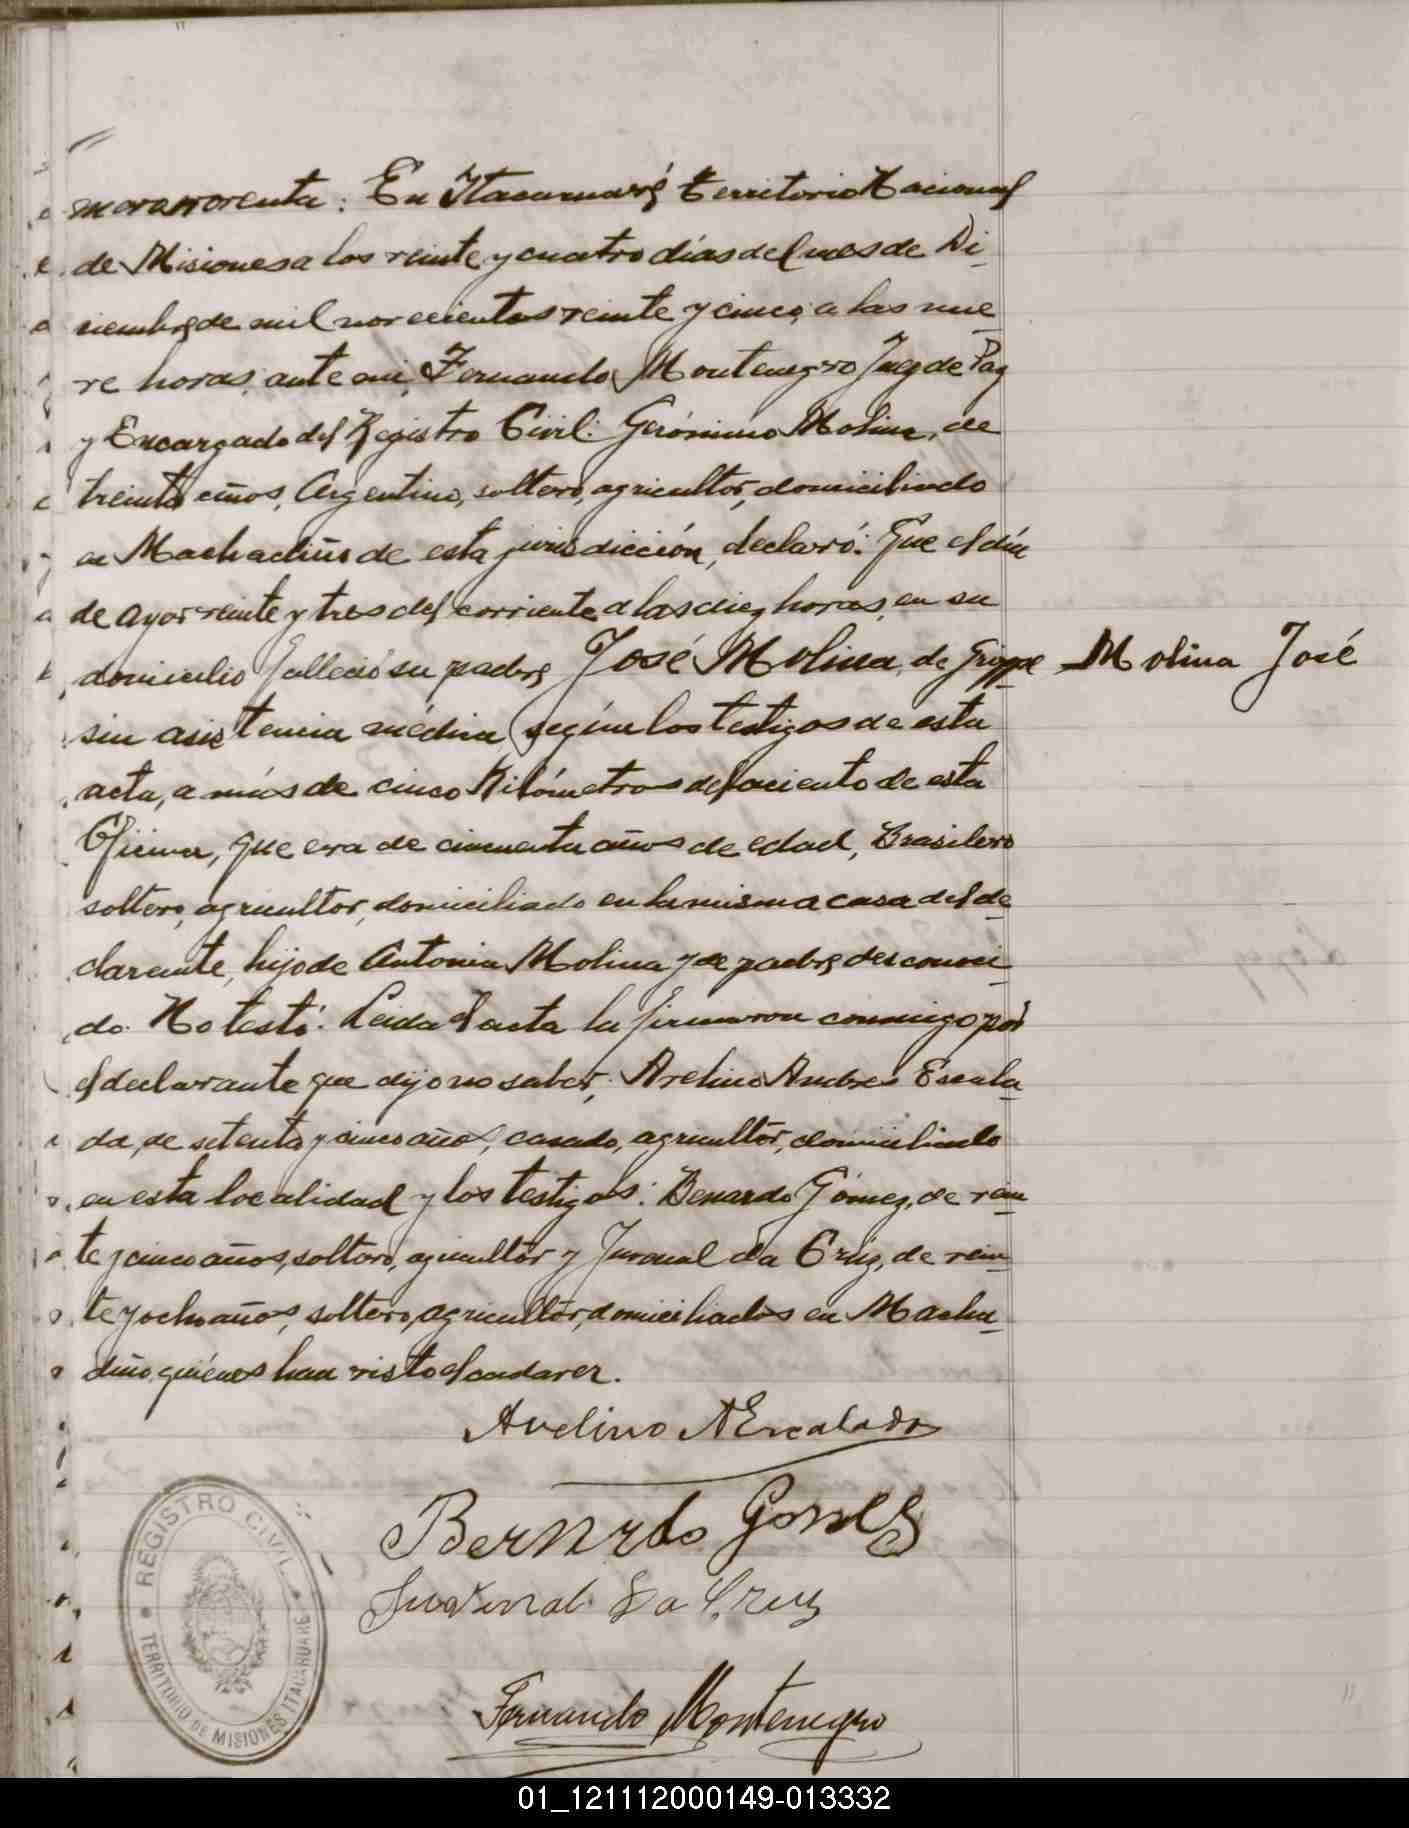 nonenta: En Itacaruaré, Territorio Nacional
de Misiones a los veinte y cuatro días del mes de Di-
ciembre de mil novecientos veinte y cinco, a las nue-
ve horas, ante mi, Fernando Montenegro Juez de Paz
y Encargado del Registro Civil: Gerónimo Molina, de
treinta años, Argentino, soltero, agricultor, domiciliado
en Machadiño de esta jurisdicción, declaró: Que el día
de ayer veinte y tres del corriente a las diez horas, en su
domicilio falleció su padre José Molina, de grippe Molina José
sin asistencia médica, según los testigos de esta
acta, a más de cinco Kilómetros del aciento de esta
Oficina, que era de cincuenta años de edad, Brasilero
soltero, agricultor, domiciliado en la misma casa del de-
clarante, hijo de Antonia Molina y de padre desconoci-
do. No testó. Leida el acta la firmaron conmigo por
el declarante que dijo no saber, Avelino Andres Escala-
da, de setenta y cinco años, casado, agricultor, domiciliado
en esta localidad y los testigos: Benardo Gómez, de vein-
te y cinco años, soltero, agricultor y Juvenal da Cruz, de vein-
te y ocho años, soltero, agricultor, domiciliados en Macha-
diño, quiénes han visto el cadaver.
Avelino A Escalada
Bernardo Gomes
Juvenal Da Cruz
Fernando Montenegro
REGISTRO CIVIL
TERRITORIO DE MISIONES ITACARUARE
01_121112000149-013332